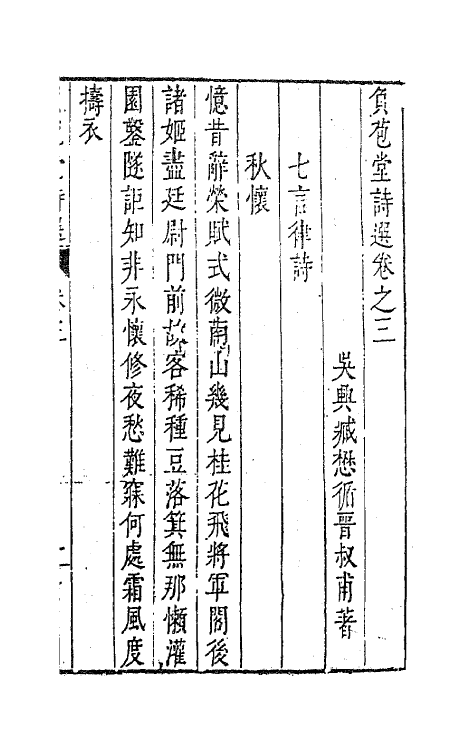 負苞堂詩選卷之三
吳興臧懋循晉叔甫著
七言律詩
秋懷
憶昔辭榮賦式微南山幾見桂花飛將軍閣後
諸姬盡廷尉門前故客稀種豆落箕無那懶灌
園鑿隧詎知非永懷修夜愁難寐何處霜風度
擣衣